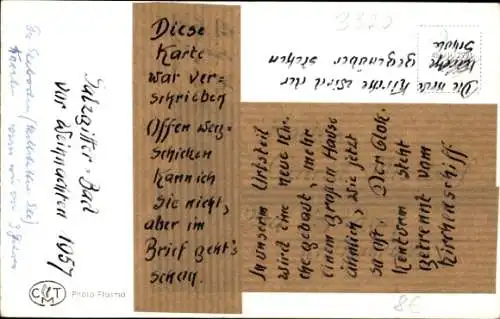 Diese
Karte
war ver=
schrieben
Offen weg=
schicken
kann ich
sie nicht,
aber im
Brief geht's
schon.
In unserm Ortsteil
wird eine neue Kir=
che gebaut, mehr
einem großen Hause
ähnlich, wie jetzt
so oft. Der Glok=
kenturm steht
getrennt vom
Kirchenschiff
Die neue Kirche wird der
Schule
gegenüber stehen
Salzgitter=Bad
vor Weihnachten 1957
CTM
Photo Flarmo
8€